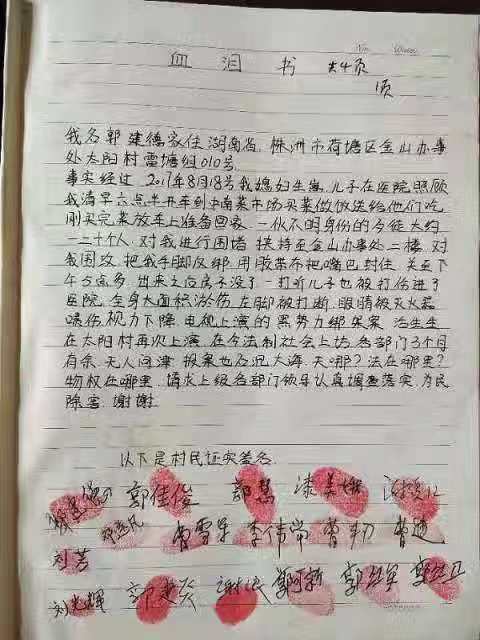 血泪书 共4页
1页
我名郭建德家住湖南省,株洲市荷塘区金山办事
处太阳村雷塘组010号
事实经过.2017年8月18号我媳妇生崽,儿子在医院照顾
我清早六点半开车到中南菜市场买菜做饭送给他们吃
刚买完菜放车上准备回家.一伙不明身份的今徒大约
一二十个人.对我进行围堵.挟持至金山办事处二楼.对
我围攻.把我手脚反绑.用胶带布把嘴巴封住.关至下
午5点多.出来之后房子没了一打听儿子也被打伤进了
医院.全身大面积治伤.左脚被打断.眼睛被灭火器
喷伤视力下降.电视上演的黑势力绑架案.活生生
在太阳村再次上演.在今法制社会上访.各部门3个月
有余.无人问津.报案也石沉大海.天哪?法在哪里?
物权在哪里.请求上级各部门领导认真调查落实.为民
除害.谢谢.
以下是村民证实签名.
郭佳俊 郭慧
曾雪军 李伟常 曾初
刘芳
刘光辉